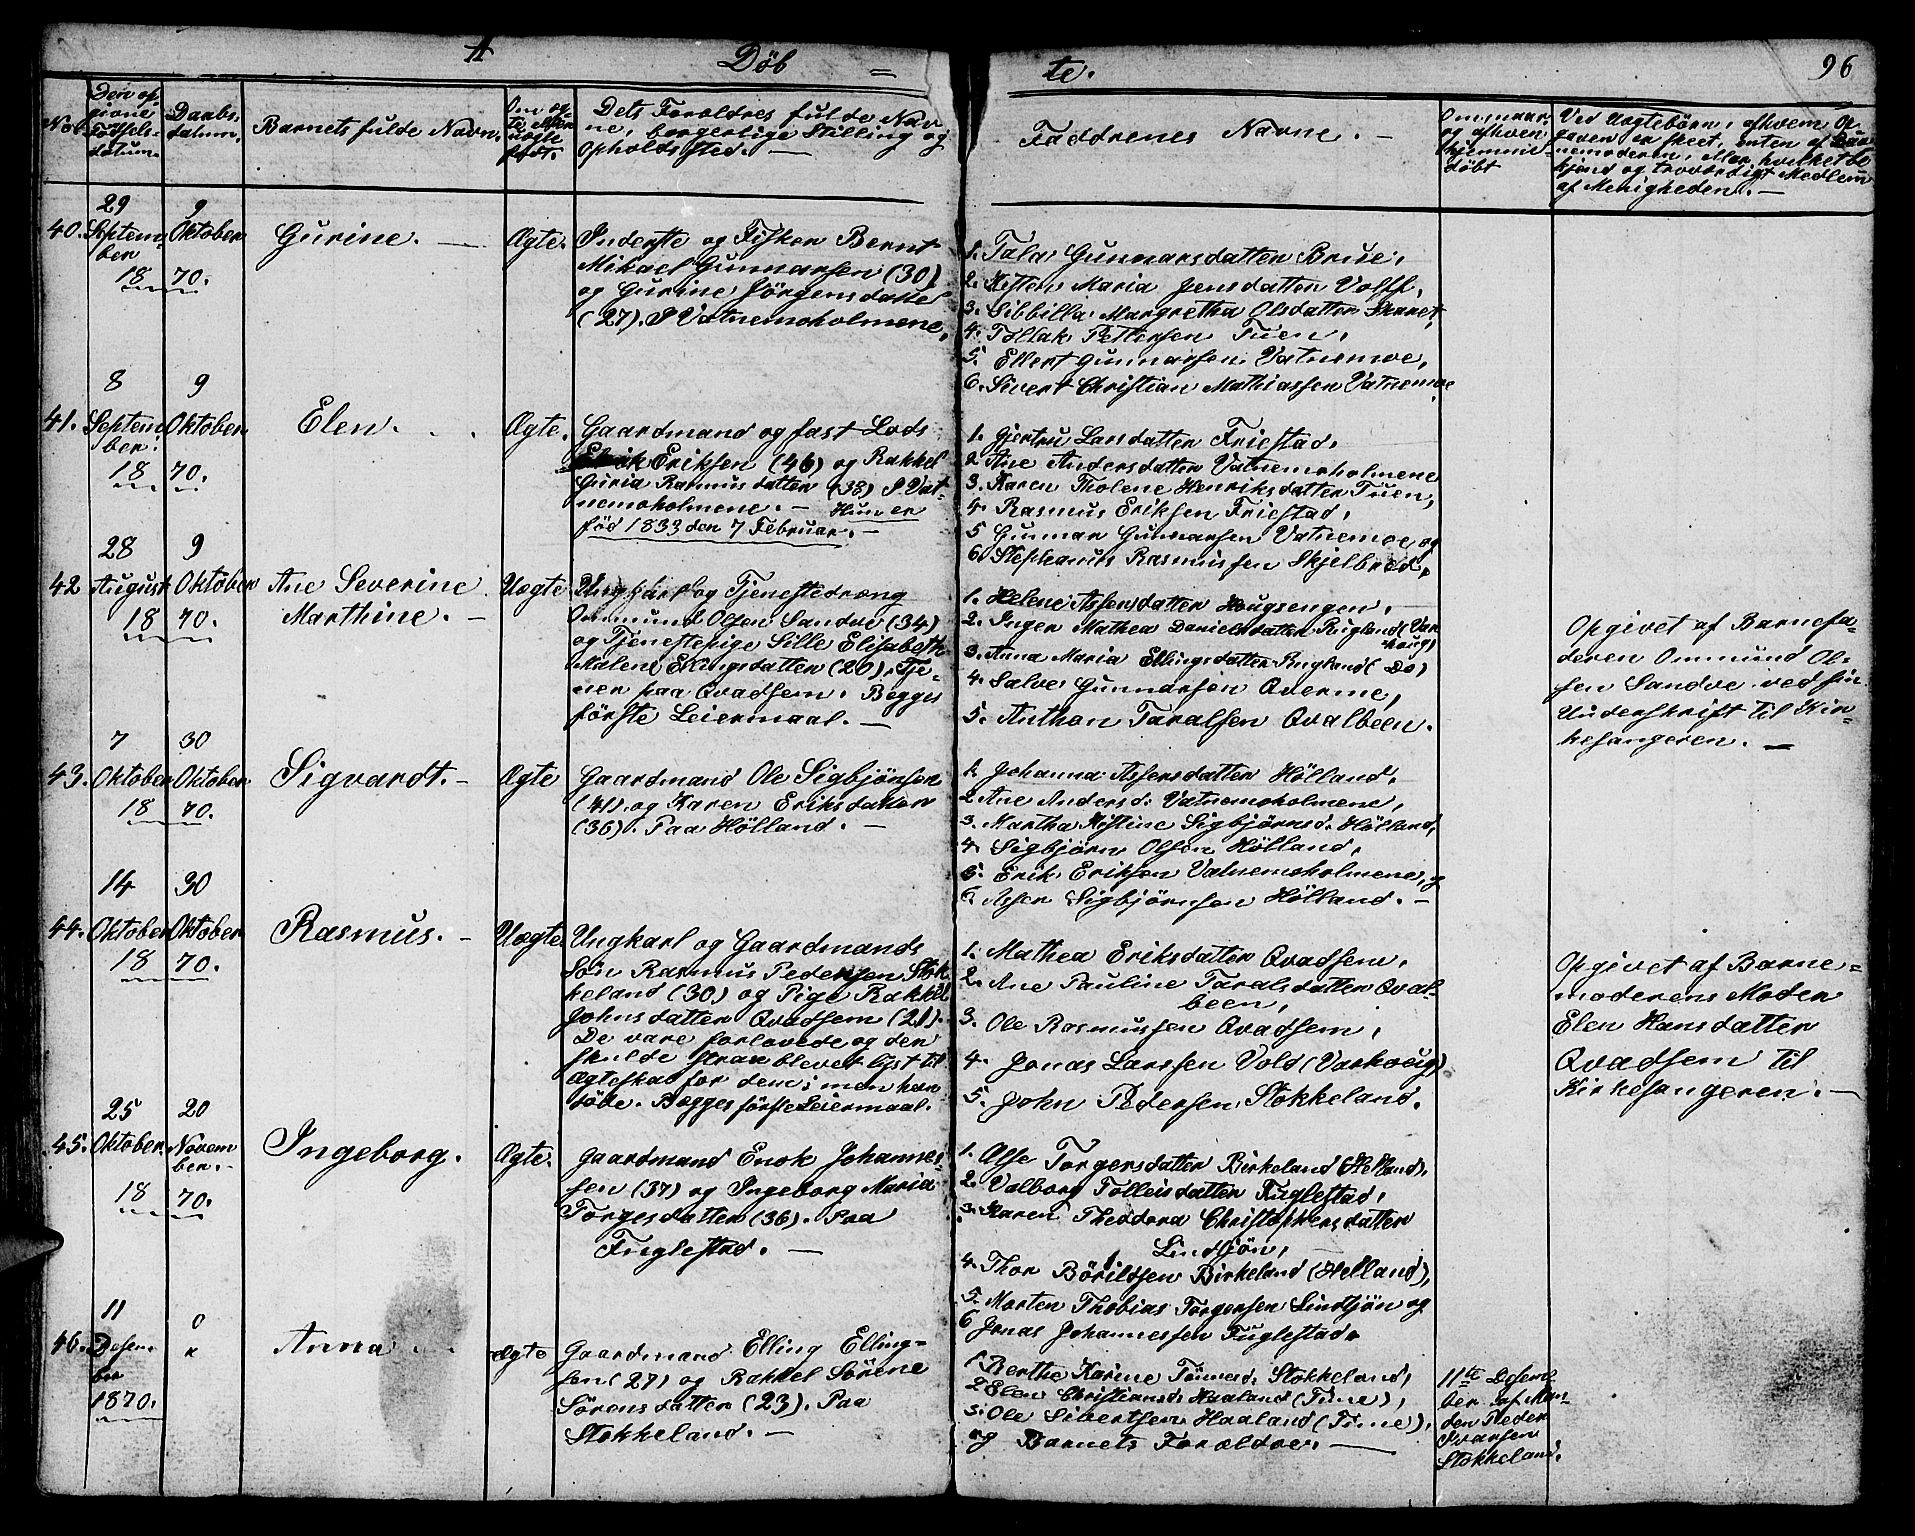 A
Döb = te.
96
No
Den op
givne
Fødsels
datum.
Daabs
datum.
Barnets fulde Navn.
Om æg-
te eller
uægte
født.
Dets Foreldres fulde Nav
ne, borgerlige Stilling og
Opholdssted. —
Faddrenes Navne. —
Om naar
og af hvem
hjemme-
döbt
Ved Uægtebörn, af hvem Op
gaven er skeet, enten af Bar
nemoderen, eller hvilket be
kjend og troværdigt Medlem
af Menigheden. —
40.
29
Septem-
ber
18
9
Oktober
70.
Gurine. —
Ægte.
Inderste og Fisker Bernt
Mikael Gunnarsen (30)
og Gurine Jörgensdatter
(27). I Vatnemoholmene,
1. Tala Gunnarsdatter Brue,
2. Kisten Maria Jensdatter Volff,
3. Sibbilla Margretha Olsdatter
4. Tollak Pettersen Tuen,
5. Ellert Gunnarsen Vatnemoe,
6. Sivert Christian Mathiassen Vatnemoe
41.
8
Septem
ber.
18
9
Oktober
70.
Elen.
Ægte.
Gaardmand og fast Lods
Eriksen (46) og Rakkel
Guria Rasmusdatter (38) I Vat-
nemoholmene. — Hun er
föd 1833 den 7 Februar. —
1. Gjertru Larsdatter Friestad,
2 Ane Andersdatter Vatnemoholmene
3. Karen Tholene Henriksdatter Tuen,
4. Rasmus Eriksen Friestad,
5 Gunnar Gunnarsen Vatnemoe og
6. Stephanus Rasmussen Skjelbred,
42
28
August
18
9
Oktober
70.
Ane Severine
Marthine. —
Uægte
Ungkarl og Tjenestedræng
Ommund Olsen Sandve (34)
og Tjenestepige Sille Elisabeth
Malene Ellingsdatter (20). Tje-
ner paa Qvadsem. Begges
förste Leiermaal. —
1. Helene Assersdatter Hougsengen,
2. Inger Mathea Danielsdatter Rugland (Var
houg)
3. Anna Maria Ellingsdatter Rugland (Do)
4. Salve Gunnarsen Qverme,
5. Anthon Taralsen Qvalbeen.
Opgivet af Barnefa-
deren Ommund Ol-
sen Sandve ved sin
Underskrift til Kir-
kesangeren. —
43.
7
Oktober
18
30
Oktober
70.
Sigvardt. —
Ægte
Gaardmand Ole Sigbjörnsen
(41) og Karen Eriksdatter
(36). Paa Hölland. —
1. Johanna Assersdatter Hölland,
2. Ane Andersd. Vatnemoholmene,
3. Martha Kistine Sigbjörnsd. Hölland,
4. Sigbjörn Olsen Hölland,
5. Erik Eriksen Vatnemoholmene, og
6. Asser Sigbjörnsen Hölland. —
44.
14
Oktober
18
30
Oktober
70.
Rasmus. —
Uægte
Ungkarl og Gaardmands
Sön Rasmus Pedersen Stok
keland (30) og Pige Rakkel
Johnsdatter Qvadsem (21).
De vare forlovede og der
skulde strax blevet lyst til
Ægteskab for dem; men han
döde. Begges förste Leiermaal.
1. Mathea Eriksdatter Qvadsem,
2. Ane Pauline Taralsdatter Qval-
been,
3. Ole Rasmussen Qvadsem,
4. Jonas Larssen Vold (Varhoug)
5. John Pedersen Stokkeland.
Opgivet af Barne-
moderens Moder
Elen Hansdatter
Qvadsem til
Kirkesangeren. —
45.
25
Oktober
18
20
Novem
ber.
70.
Ingeborg.
Ægte.
Gaardmand Enok Johannes-
sen (37) og Ingeborg Maria
Torgersdatter (36). Paa
Fuglestad. —
1. Alse Torgersdatter Birkeland (Helland),
2. Valborg Tolleisdatter Fuglestad,
3. Karen Theodora Christophersdatter
Lindtjön,
4. Thor Böriltsen Birkeland (Helland),
5. Morten Thobias Torgersen Lindtjön og
6 Jonas Johannessen Fuglestad.
46.
11
Desem-
ber
1870.
0
Anna
Ægte
Gaardmand Elling Elling-
sen (27) og Rakkel Sörene
Sörensdatter (23). Paa
Stokkeland. —
1. Berthe Karine Tönnesd. Stokkeland,
2 Elen Christiansd. Haaland (Time),
3. Ole Sivertsen Haaland (Time),
og Barnets Forældre. —
11te Desem
ber af Man-
den Peder
Ivarsen
Stokkeland.